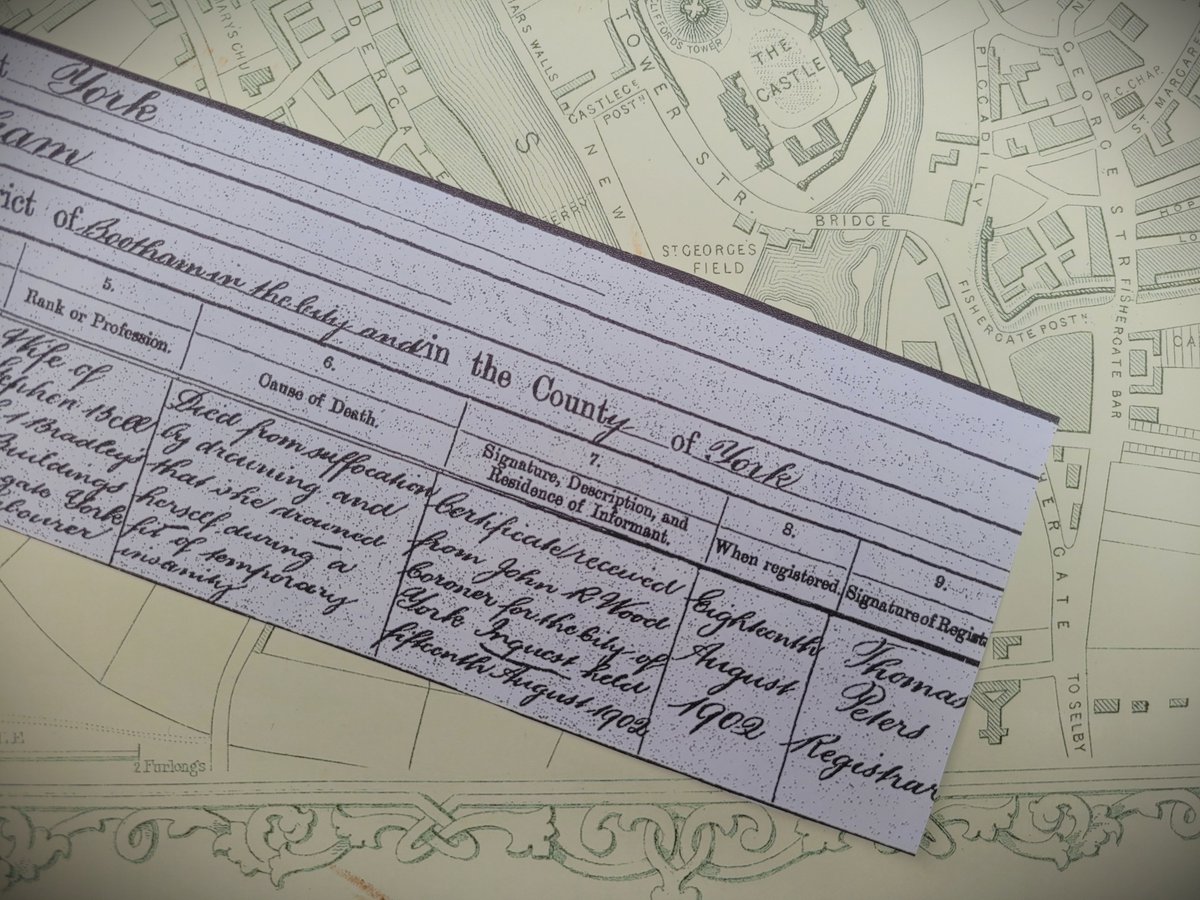 MARY'S CH.
AIR'S WALLS
TOWER STR.
CLIFFORDS TOWER
THE
CASTLE
CASTLEGE
POSTN
NEW
S
FERRY
ST GEORGE'S
FIELD
BRIDGE
PICCADILLY
GEORGE STR.
R.C. CHAP
ST MARGAR
HOP
LO
FISHER
GATE POSTN
FISHERGATE BAR
CA
ERGATE
TO SELBY
2 Furlongs
t York
ham
rict of Bootham in the City and in the County of York
5.
Rank or Profession.
Wife of
ephen Bell
of 1 Bradleys
Buildings
gate York
bourer
6.
Cause of Death.
Died from suffocation
by drowning and
that she drowned
herself during a
fit of temporary
insanity
7.
Signature, Description, and
Residence of Informant.
Certificate received
from John R Wood
Coroner for the City of
York Inquest held
fifteenth August 1902
8.
When registered.
Eighteenth
August
1902
9.
Signature of Regist
Thomas
Peters
Registrar